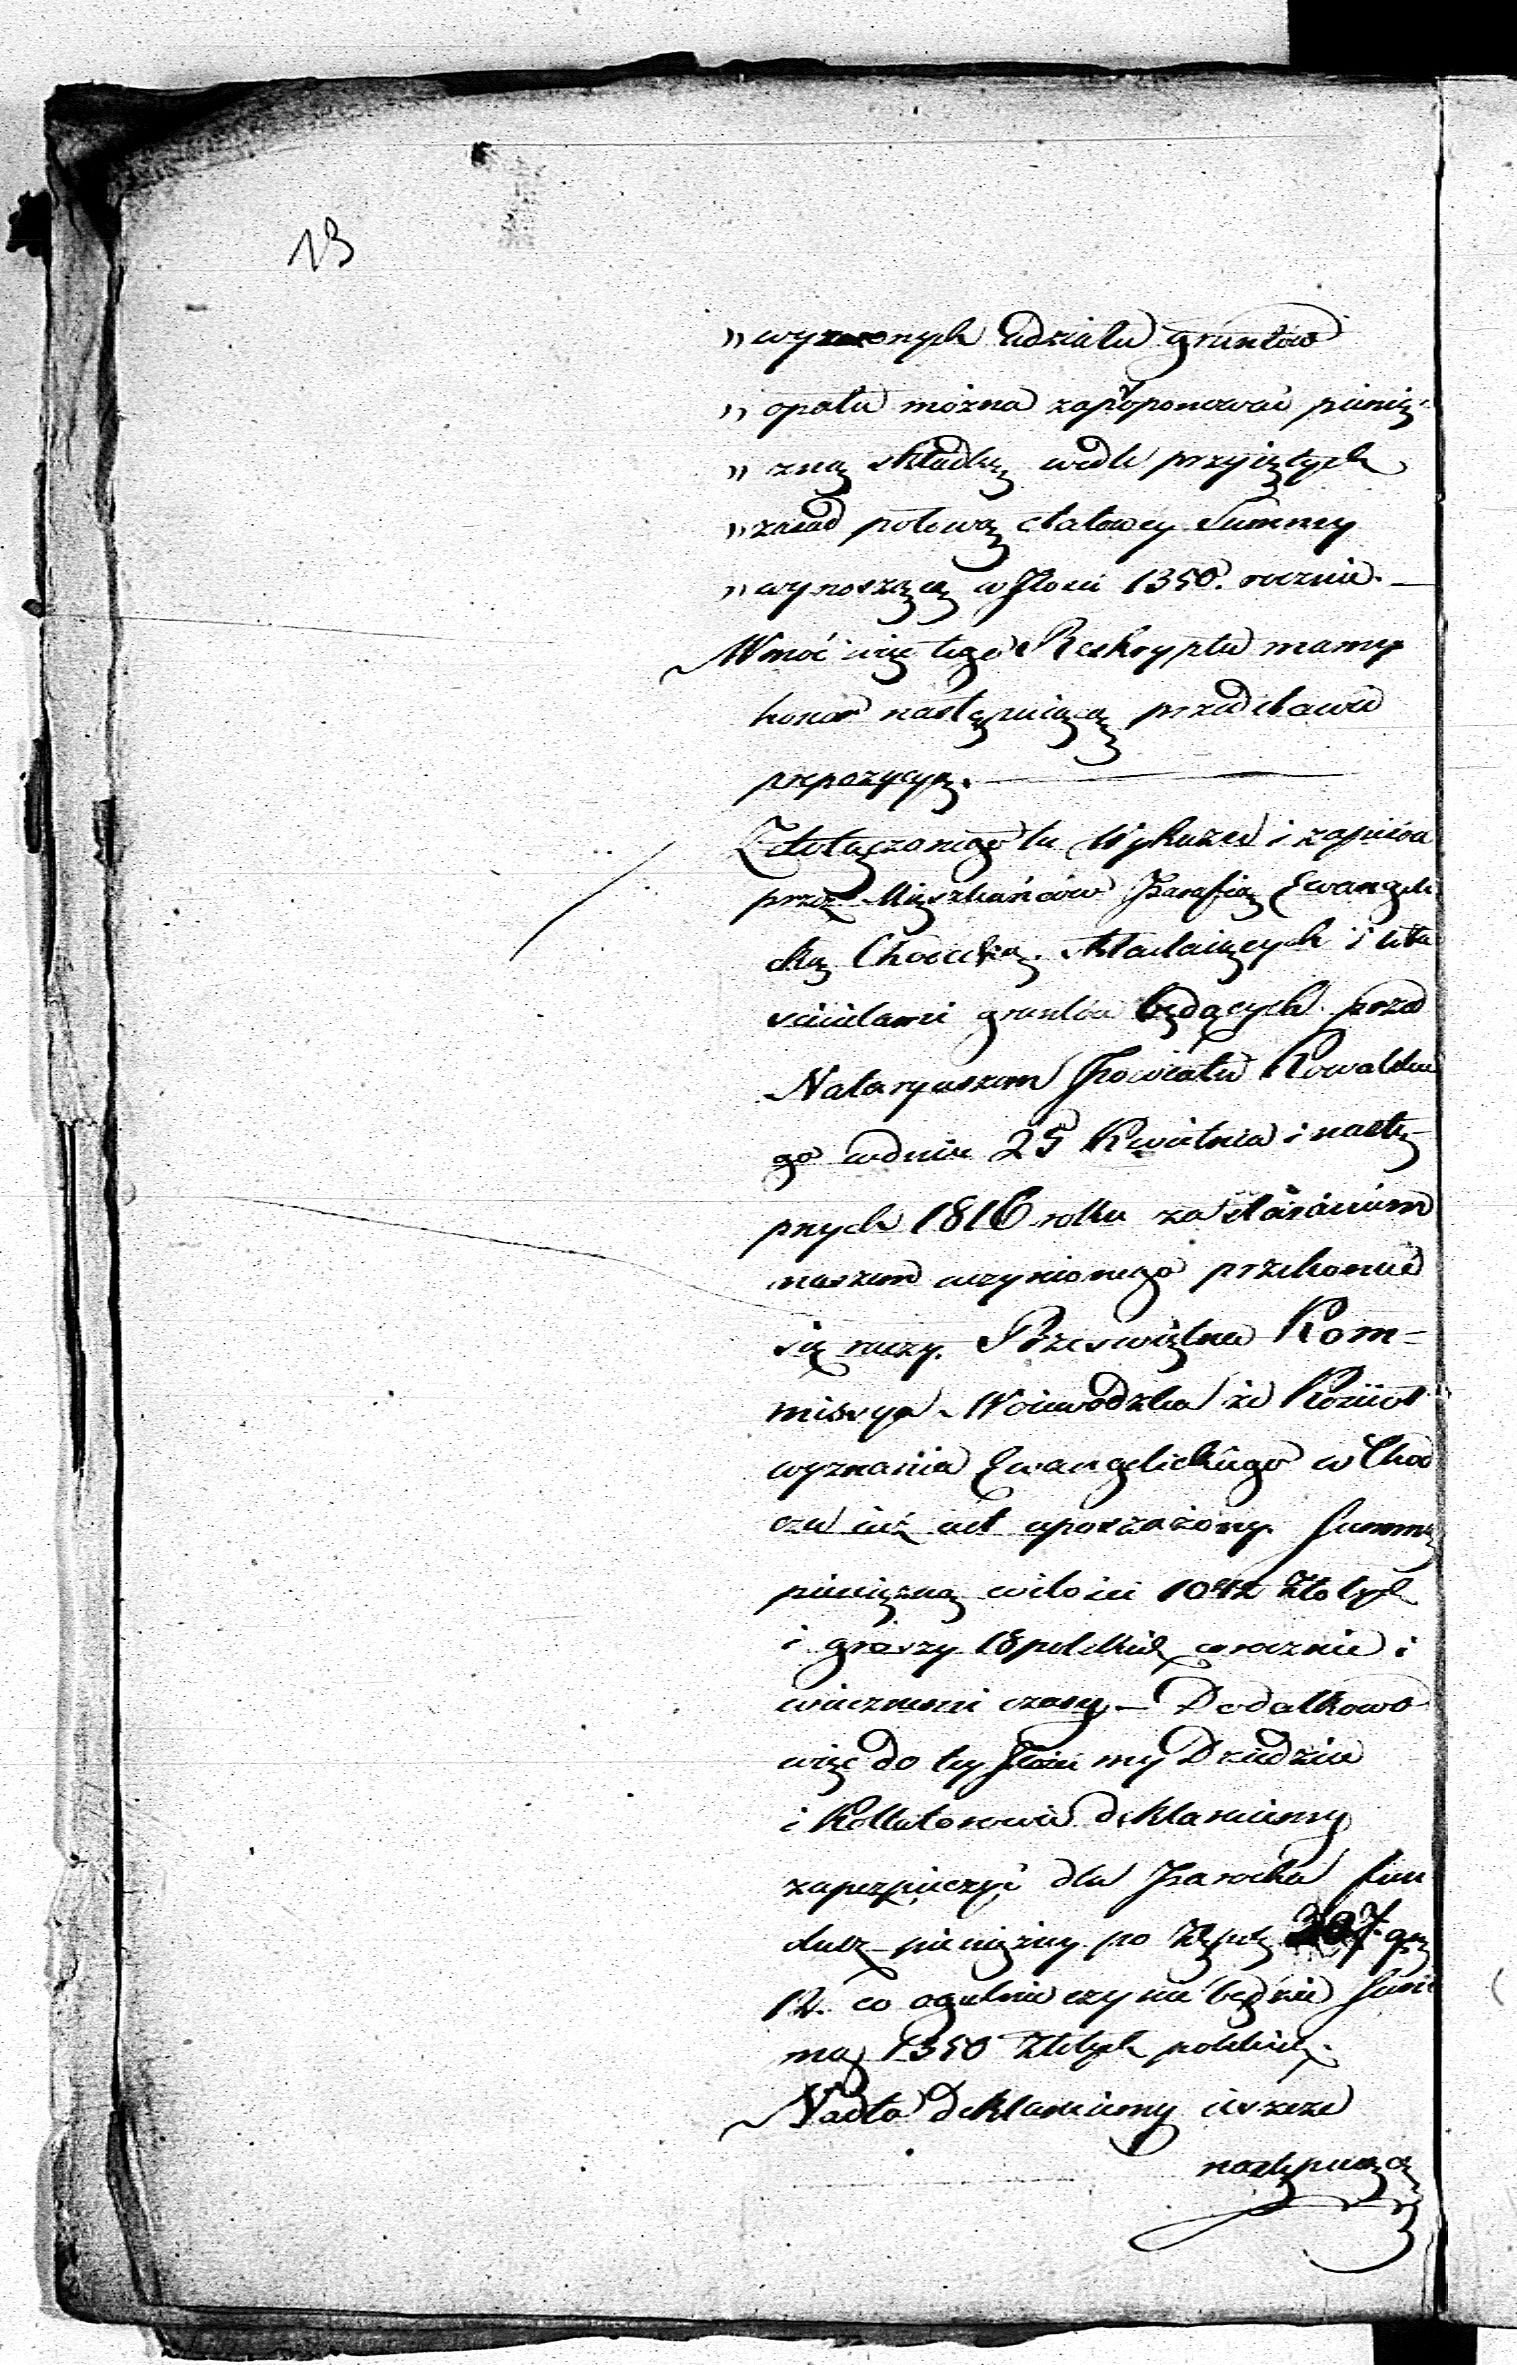 13
„ wyrzeczonych udziału gruntów
„ opału można zaproponować pienię-
„ zną składkę wedle przyiętych
„ zasad połową etatowey Summy
„ wynoszącą w Ilości 1350. rocznie. —
W moc więc tego Reskryptu mamy
honor następuiącą przedstawić
propozycyą. —
Z dołączonego tu Wykazu i zapisów
przez Mieszkańców Parafią Ewangeli
cką Chodecką składaiących i wła
ścicielami gruntów będących przed
Notaryuszem Powiatu Kowalskie
go w dniu 25 Kwietnia i nastę-
pnych 1816 roku za staraniem
naszem uczynionego przekonać
się raczy. Prześwietna Kom-
missya Woiewodzka że Kościoł
wyznania Ewangelickiego w Chod
czu iuż iest uposażony Summą
pieniężną w ilości 1042 Złotych
i groszy 18 polskich corocznie i
wiecznemi czasy — Dodatkowo
więc do tey Ilości my Dziedzice
i Kollatorowie deklaruiemy
zapezpieczyć dla Parocha fun
dusz pieniężny po Złp. 307. gr.
12. co ogulnie czynić będzie Sum
mę 1350 Złotych polskich.
Nadto Deklaruiemy ieszcze
następuiącą